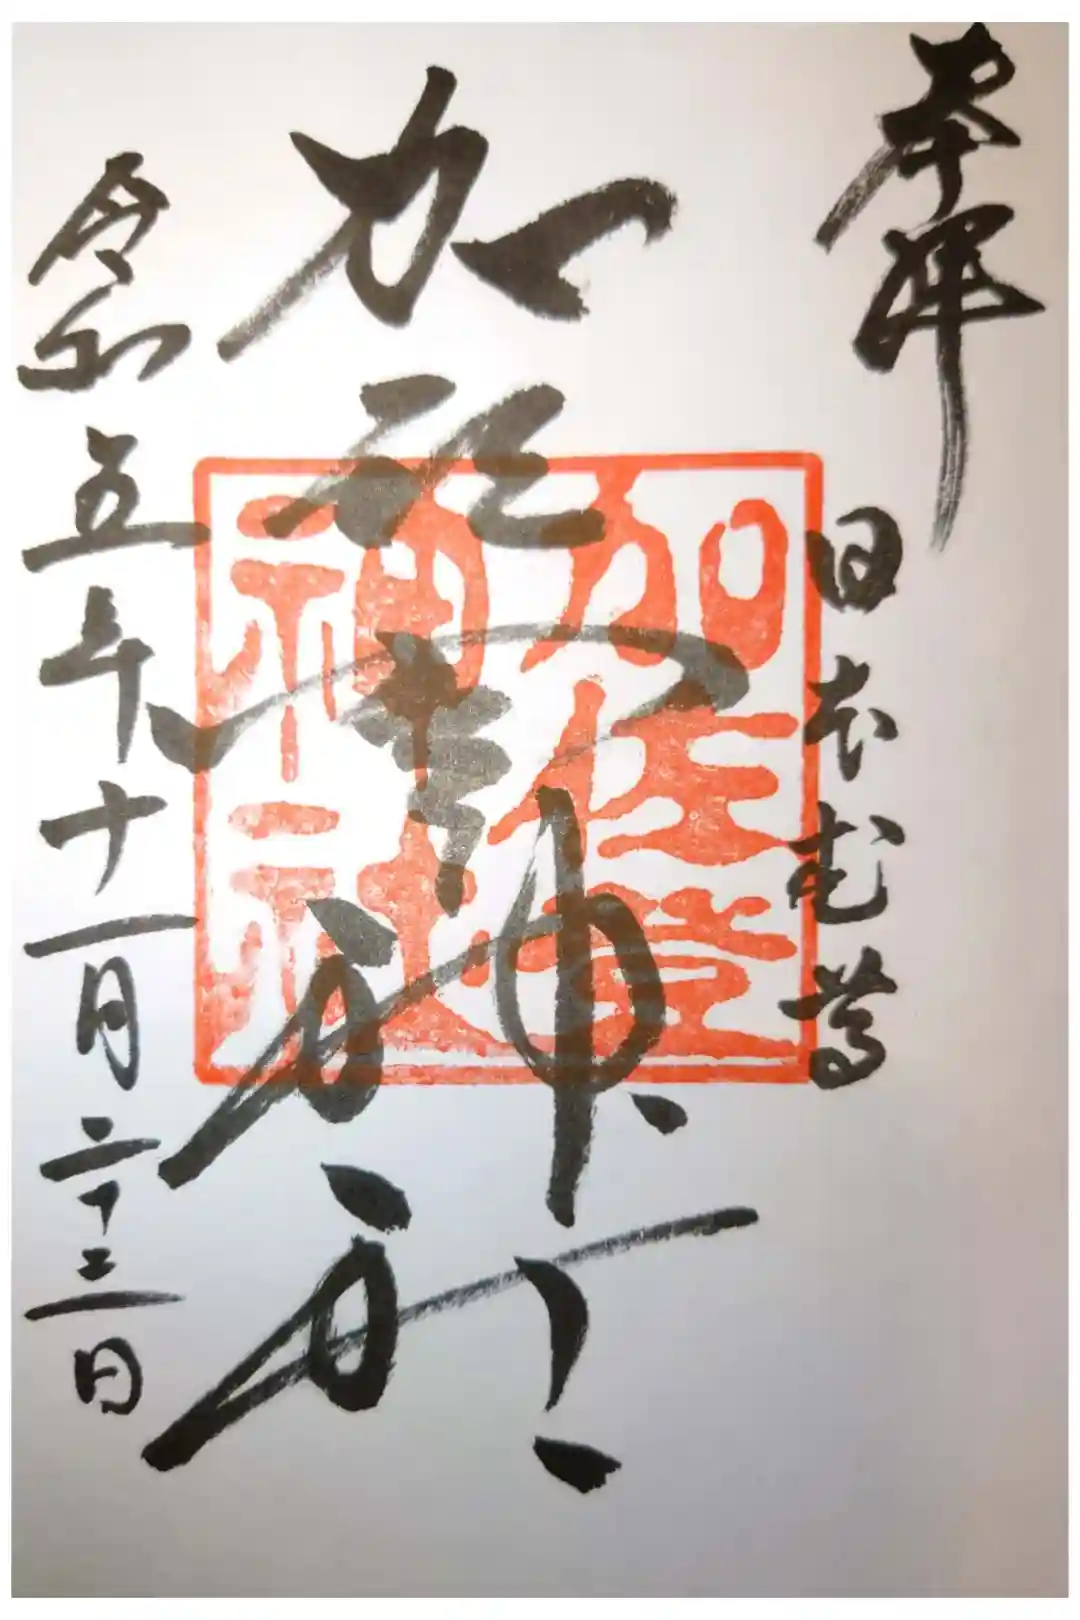 奉拝
日本武尊
加佐登神社
令和五年十一月二十三日
加佐登
神社